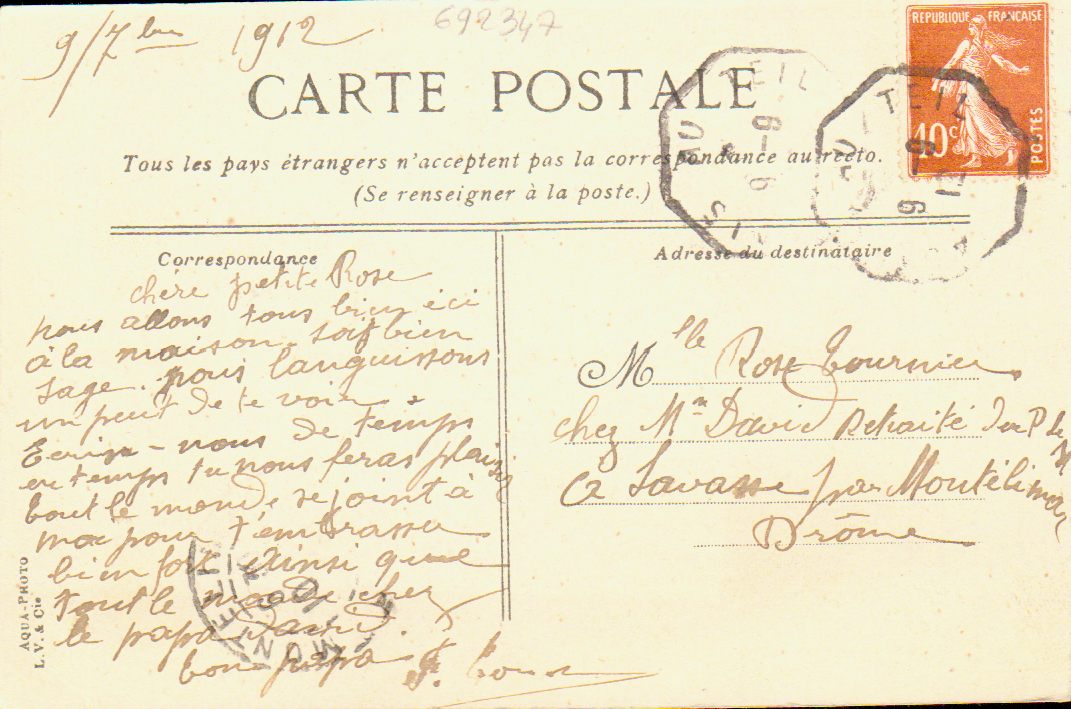 9/7bre 1912
692347
CARTE POSTALE
Tous les pays étrangers n'acceptent pas la correspondance au recto.
(Se renseigner à la poste.)
REPUBLIQUE FRANÇAISE
10c
POSTES
AU TEIL
9-9
AU TEIL
9
12
Correspondance
chère petite Rose
nous allons tous bien ici
à la maison. soit bien
sage. nous languissons
un peut de te voir
Ecrire-nous de temps
en temps tu nous feras plaisir
tout le monde se joint à
moi pour t'embrasser
bien fort Ainsi que
tout le monde chez
le papa David.
ton papa
Adresse du destinataire
Mlle Rose Tournier
chez Mr David Retraité du P
à Savasse par Montélimar
Drôme
MONTELIMAR
AQUA-PHOTO
L.V. & Cie